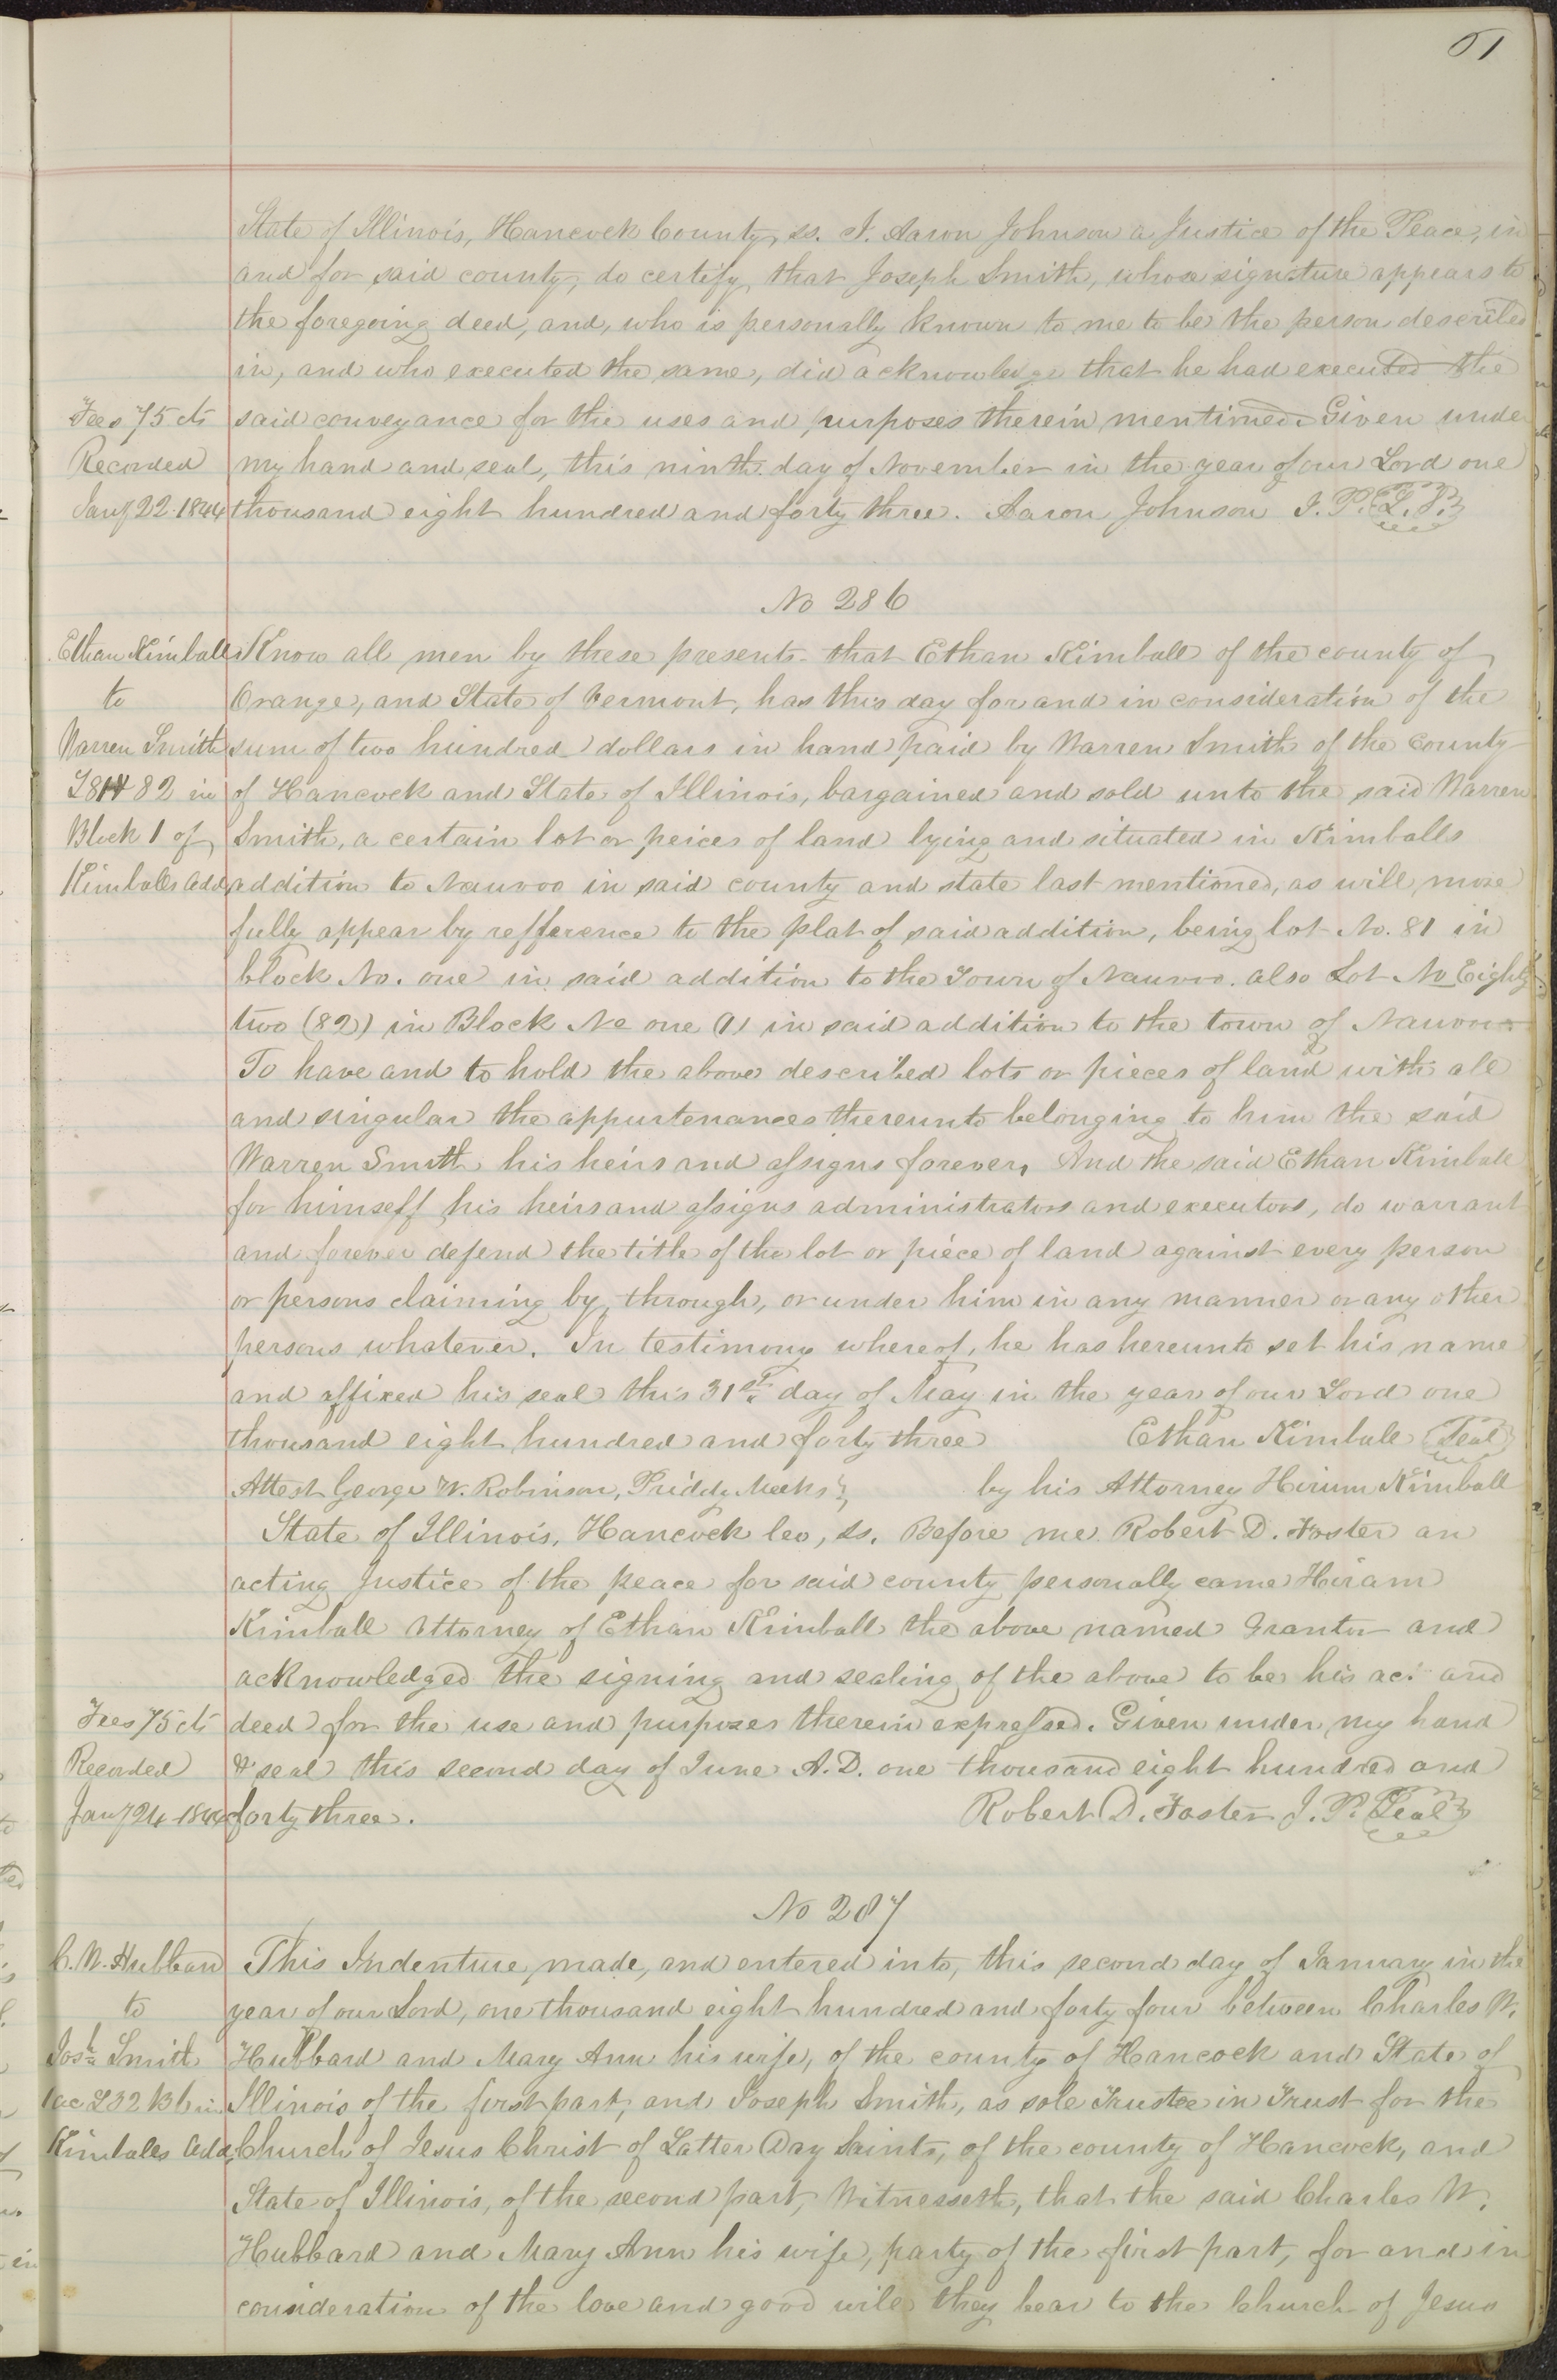 61
State of Illinois, Hancock County, ss. I. Aaron Johnson a Justice of the Peace, in
and for said county, do certify, that Joseph Smith, whose signature appears to
the foregoing deed, and, who is personally known to me to be the person described
in, and who executed the same, did acknowledge that he had executed the
Fees 75 cts said conveyance for the uses and purposes therein mentioned. Given unde
Recorded my hand and seal, this ninth day of November in the year of our Lord one
Jany 22. 1844 thousand eight hundred and forty three. Aaron Johnson J. P. L. S.
No 286
Ethan Kimball Know all men by these presents that Ethan Kimball of the county of
to Orange, and State of Vermont, has this day for and in consideration of the
Warren Smith sum of two hundred dollars in hand paid by Warren Smith of the County
L 81 & 82 in of Hancock and State of Illinois, bargained and sold unto the said Warren
Block 1 of Smith, a certain lot or peices of land lying and situated in Kimballs
Kimballs add addition to Nauvoo in said county and state last mentioned, as will more
fully appear by refference to the plat of said addition, being lot No. 81 in
block No. one in said addition to the Town of Nauvoo. also Lot No Eighty
two (82) in Block No one (1) in said addition to the town of Nauvoo
To have and to hold the above described lots or pieces of land with all
and singular the appurtenances thereunto belonging to him the said
Warren Smith his heirs and assigns forever, And the said Ethan Kimball
for himself his heirs and assigns administrators and executors, do warrant
and forever defend the title of the lot or piece of land against every person
or persons claiming by, through, or under him in any manner or any other
persons whatever. In testimony whereof, he has hereunto set his name
and affixed his seal this 31st day of May in the year of our Lord one
thousand eight hundred and forty three Ethan Kimball Seal
Attest George W. Robinson, Priddy Meeks } by his Attorney Hirum Kimball
State of Illinois, Hancock Co, ss. Before me Robert D. Foster an
acting Justice of the peace for said county personally came Hiram
Kimball Attorney of Ethan Kimball the above named Grantor and
acknowledged the signing and sealing of the above to be his act and
Fees 75 cts deed for the use and purposes therein expressed. Given under my hand
Recorded & seal this second day of June A.D. one thousand eight hundred and
Jany 24 1844 forty three. Robert D. Foster J. P. Seal
No 287
C. W. Hubbard This Indenture, made, and entered into, this second day of January in the
to year of our Lord, one thousand eight hundred and forty four between Charles W.
Josh Smith Hubbard and Mary Ann his wife, of the county of Hancock and State of
1 ac L 32 B 6 in Illinois of the first part, and Joseph Smith, as sole Trustee in Trust for the
Kimballs Add. Church of Jesus Christ of Latter Day Saints, of the county of Hancock, and
State of Illinois, of the second part, Witnesseth, that the said Charles W.
Hubbard and Mary Ann his wife, party of the first part, for and in
consideration of the love and good will they bear to the Church of Jesus